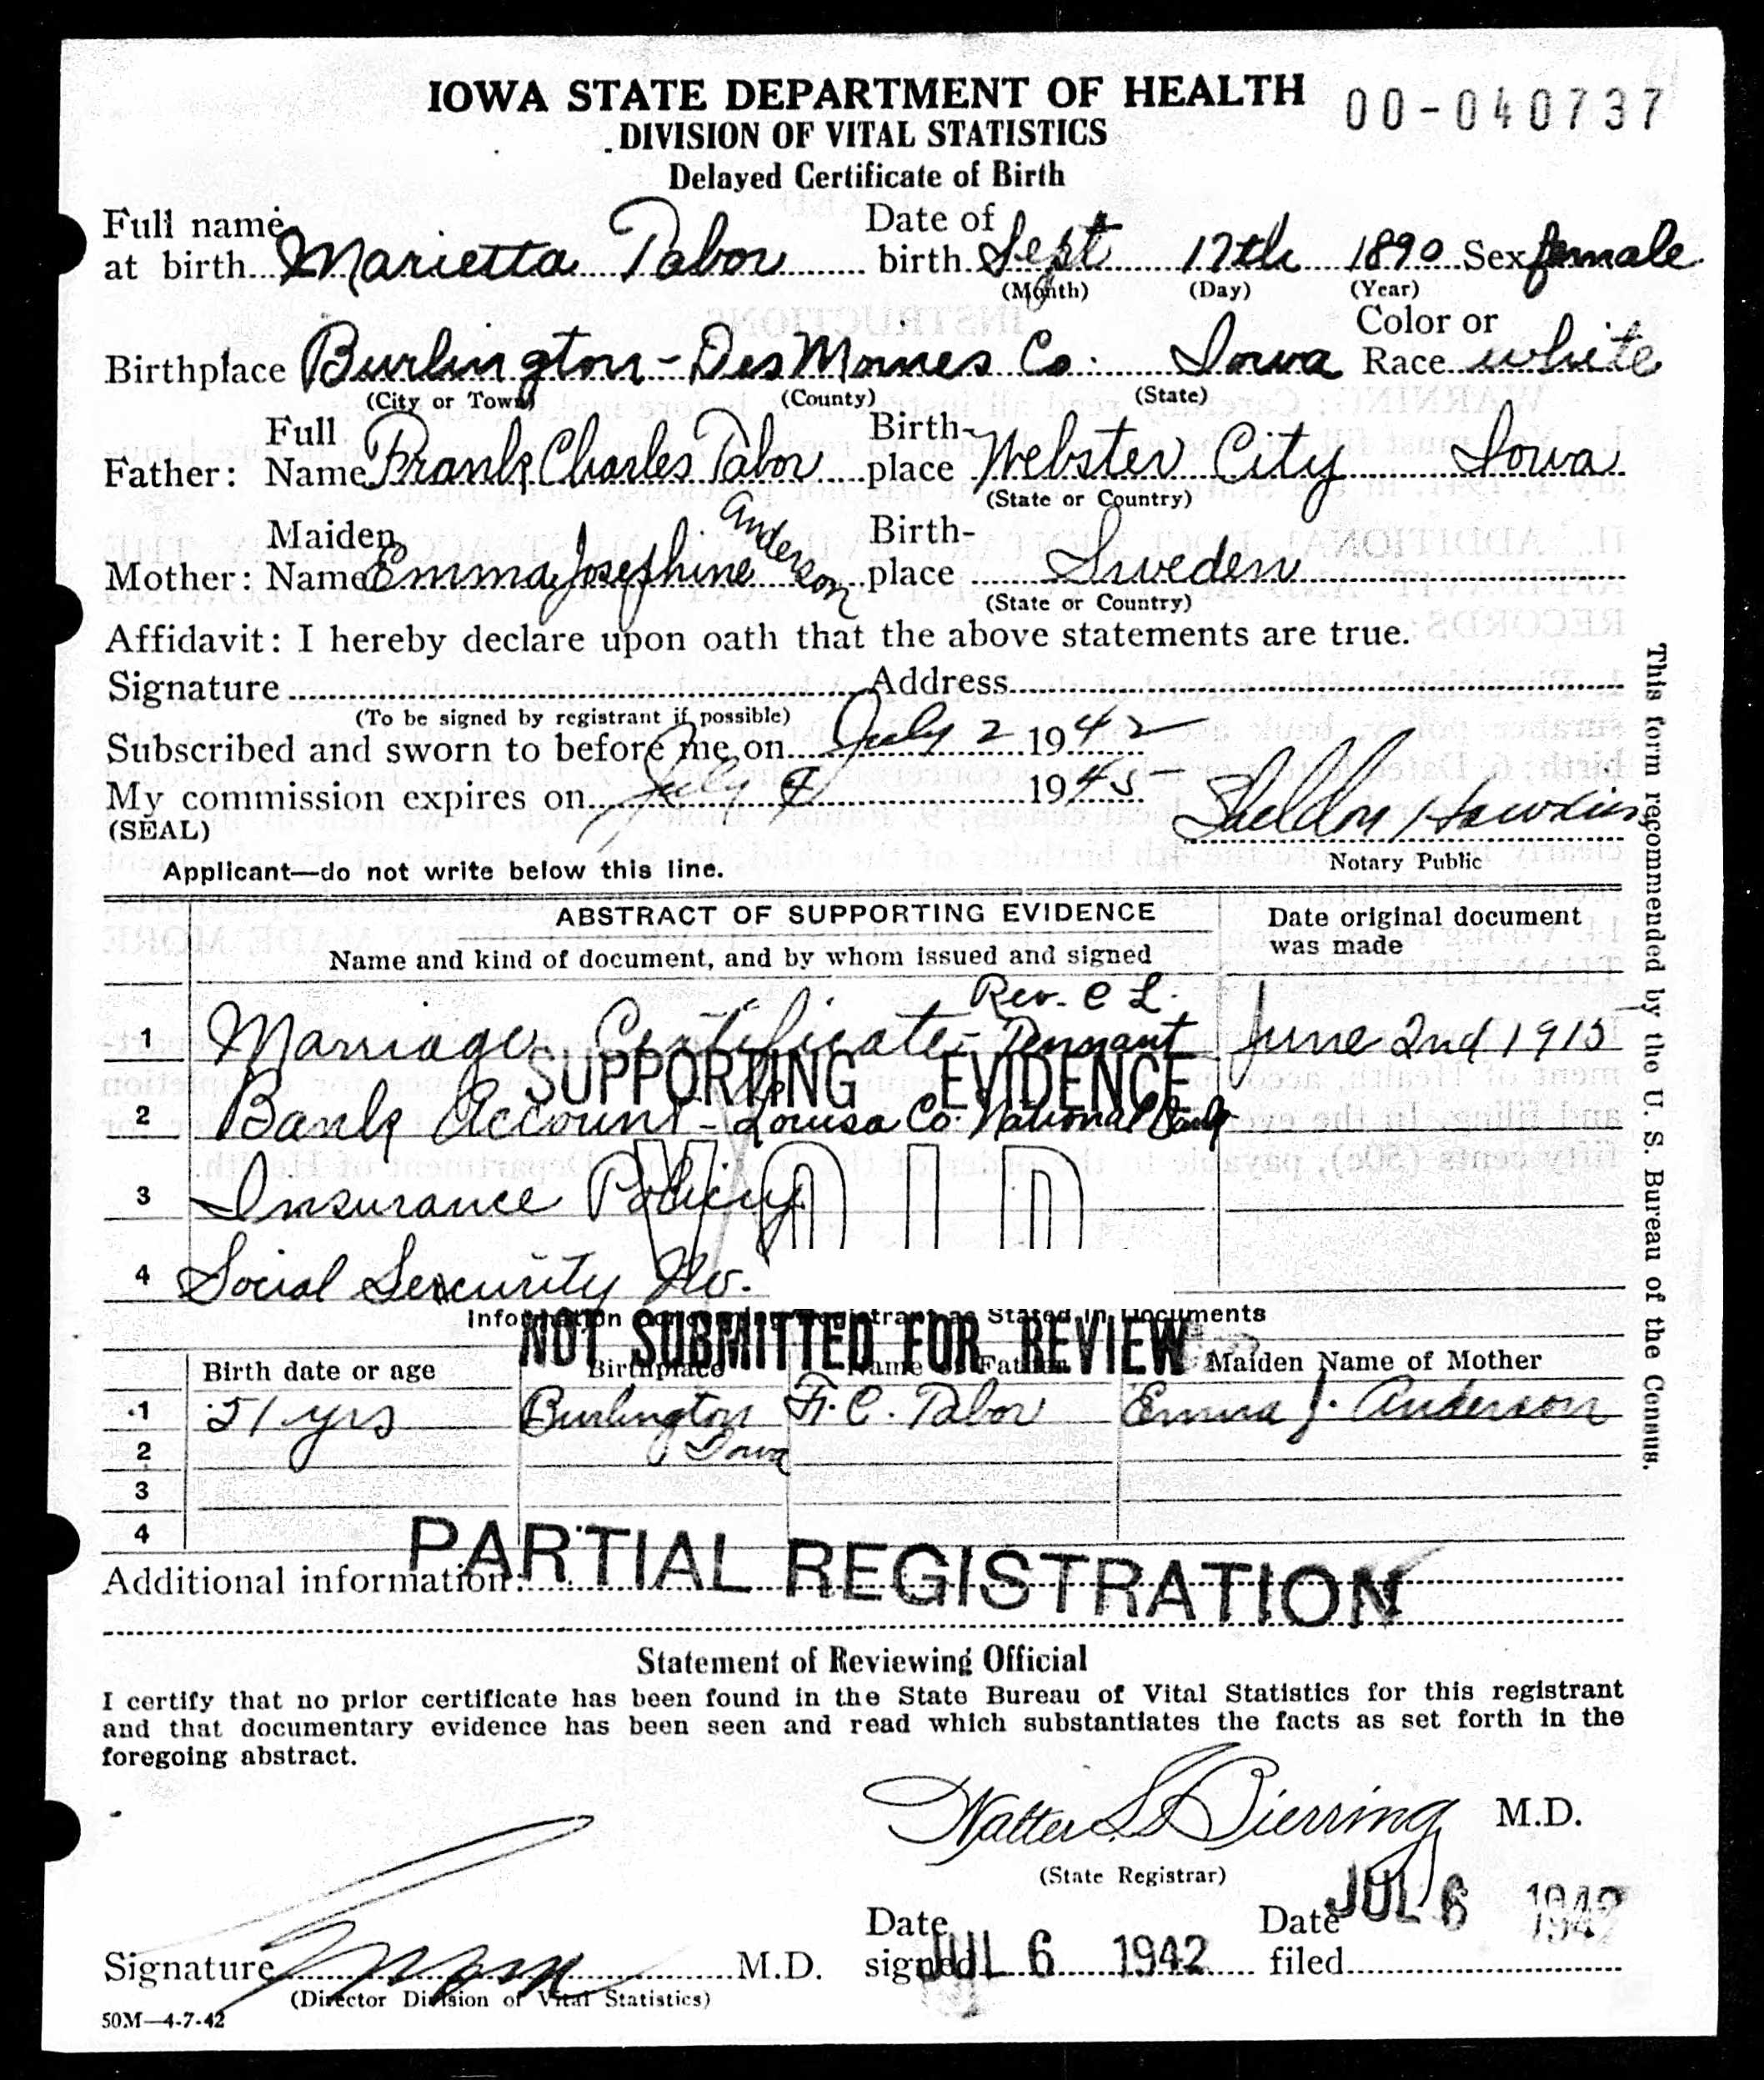 IOWA STATE DEPARTMENT OF HEALTH 00-040737
DIVISION OF VITAL STATISTICS
Delayed Certificate of Birth
Full name at birth Marietta Tabor Date of birth Sept 17th 1890 Sex female
(Month) (Day) (Year)
Birthplace Burlington - Des Moines Co. Iowa Color or Race white
(City or Town) (County) (State)
Father: Full Name Frank Charles Tabor Birth-place Webster City Iowa
(State or Country)
Mother: Maiden Name Emma Josephine Anderson Birth-place Sweden
(State or Country)
Affidavit: I hereby declare upon oath that the above statements are true.
Signature Address
(To be signed by registrant if possible)
Subscribed and sworn to before me on July 2 1942
My commission expires on July 4 1945
(SEAL) Sheldon Hawkins
Applicant—do not write below this line. Notary Public
ABSTRACT OF SUPPORTING EVIDENCE Date original document was made
Name and kind of document, and by whom issued and signed
1 Marriage Certificate - Rev. C L. Tennant June 2nd 1915
SUPPORTING EVIDENCE
2 Bank Account - Louisa Co. National Bank
VOID
3 Insurance Policy
4 Social Sercurity No.
Information Concerning Registrant as Stated in Documents
NOT SUBMITTED FOR REVIEW
Birth date or age Birthplace Name of Father Maiden Name of Mother
1 51 yrs Burlington Iowa F. C. Tabor Emma J. Anderson
2
3
4
PARTIAL REGISTRATION
Additional information:
Statement of Reviewing Official
I certify that no prior certificate has been found in the State Bureau of Vital Statistics for this registrant
and that documentary evidence has been seen and read which substantiates the facts as set forth in the
foregoing abstract.
Walter L. Bierring M.D.
(State Registrar)
Signature M.D. Date signed JUL 6 1942 Date filed JUL 6 1942
(Director Division of Vital Statistics)
50M—4-7-42
This form recommended by the U. S. Bureau of the Census.